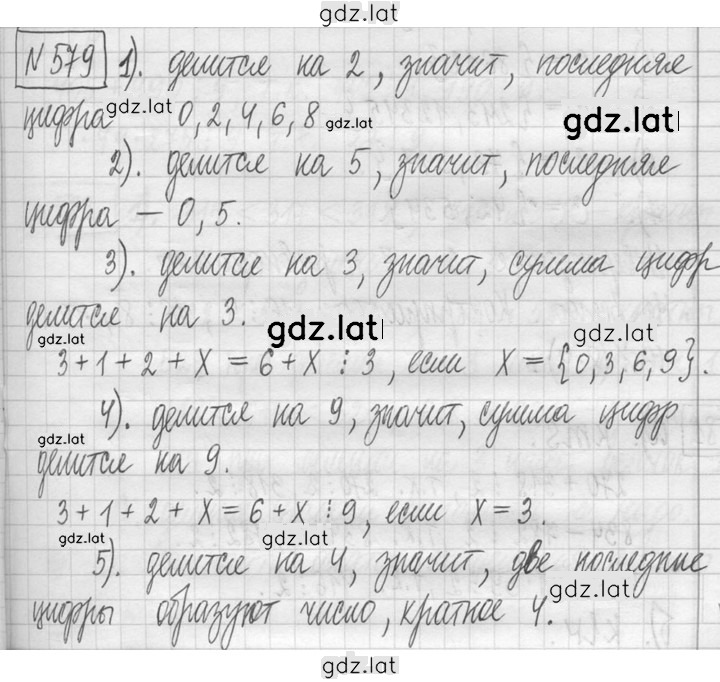 gdz.lat
№579 1). делится на 2, значит, последняя
цифра gdz.lat 0, 2, 4, 6, 8 gdz.lat gdz.lat
2). делится на 5, значит, последняя
цифра – 0, 5.
3). делится на 3, значит, сумма цифр
делится на 3.
gdz.lat gdz.lat
3 + 1 + 2 + X = 6 + X ⋮ 3, если X = {0, 3, 6, 9}.
4). делится на 9, значит, сумма цифр
gdz.lat
делится на 9.
3 + 1 + 2 + X = 6 + X ⋮ 9, если X = 3.
gdz.lat gdz.lat
5). делится на 4, значит, две последние
gdz.lat
цифры образуют число, кратное 4.
gdz.lat